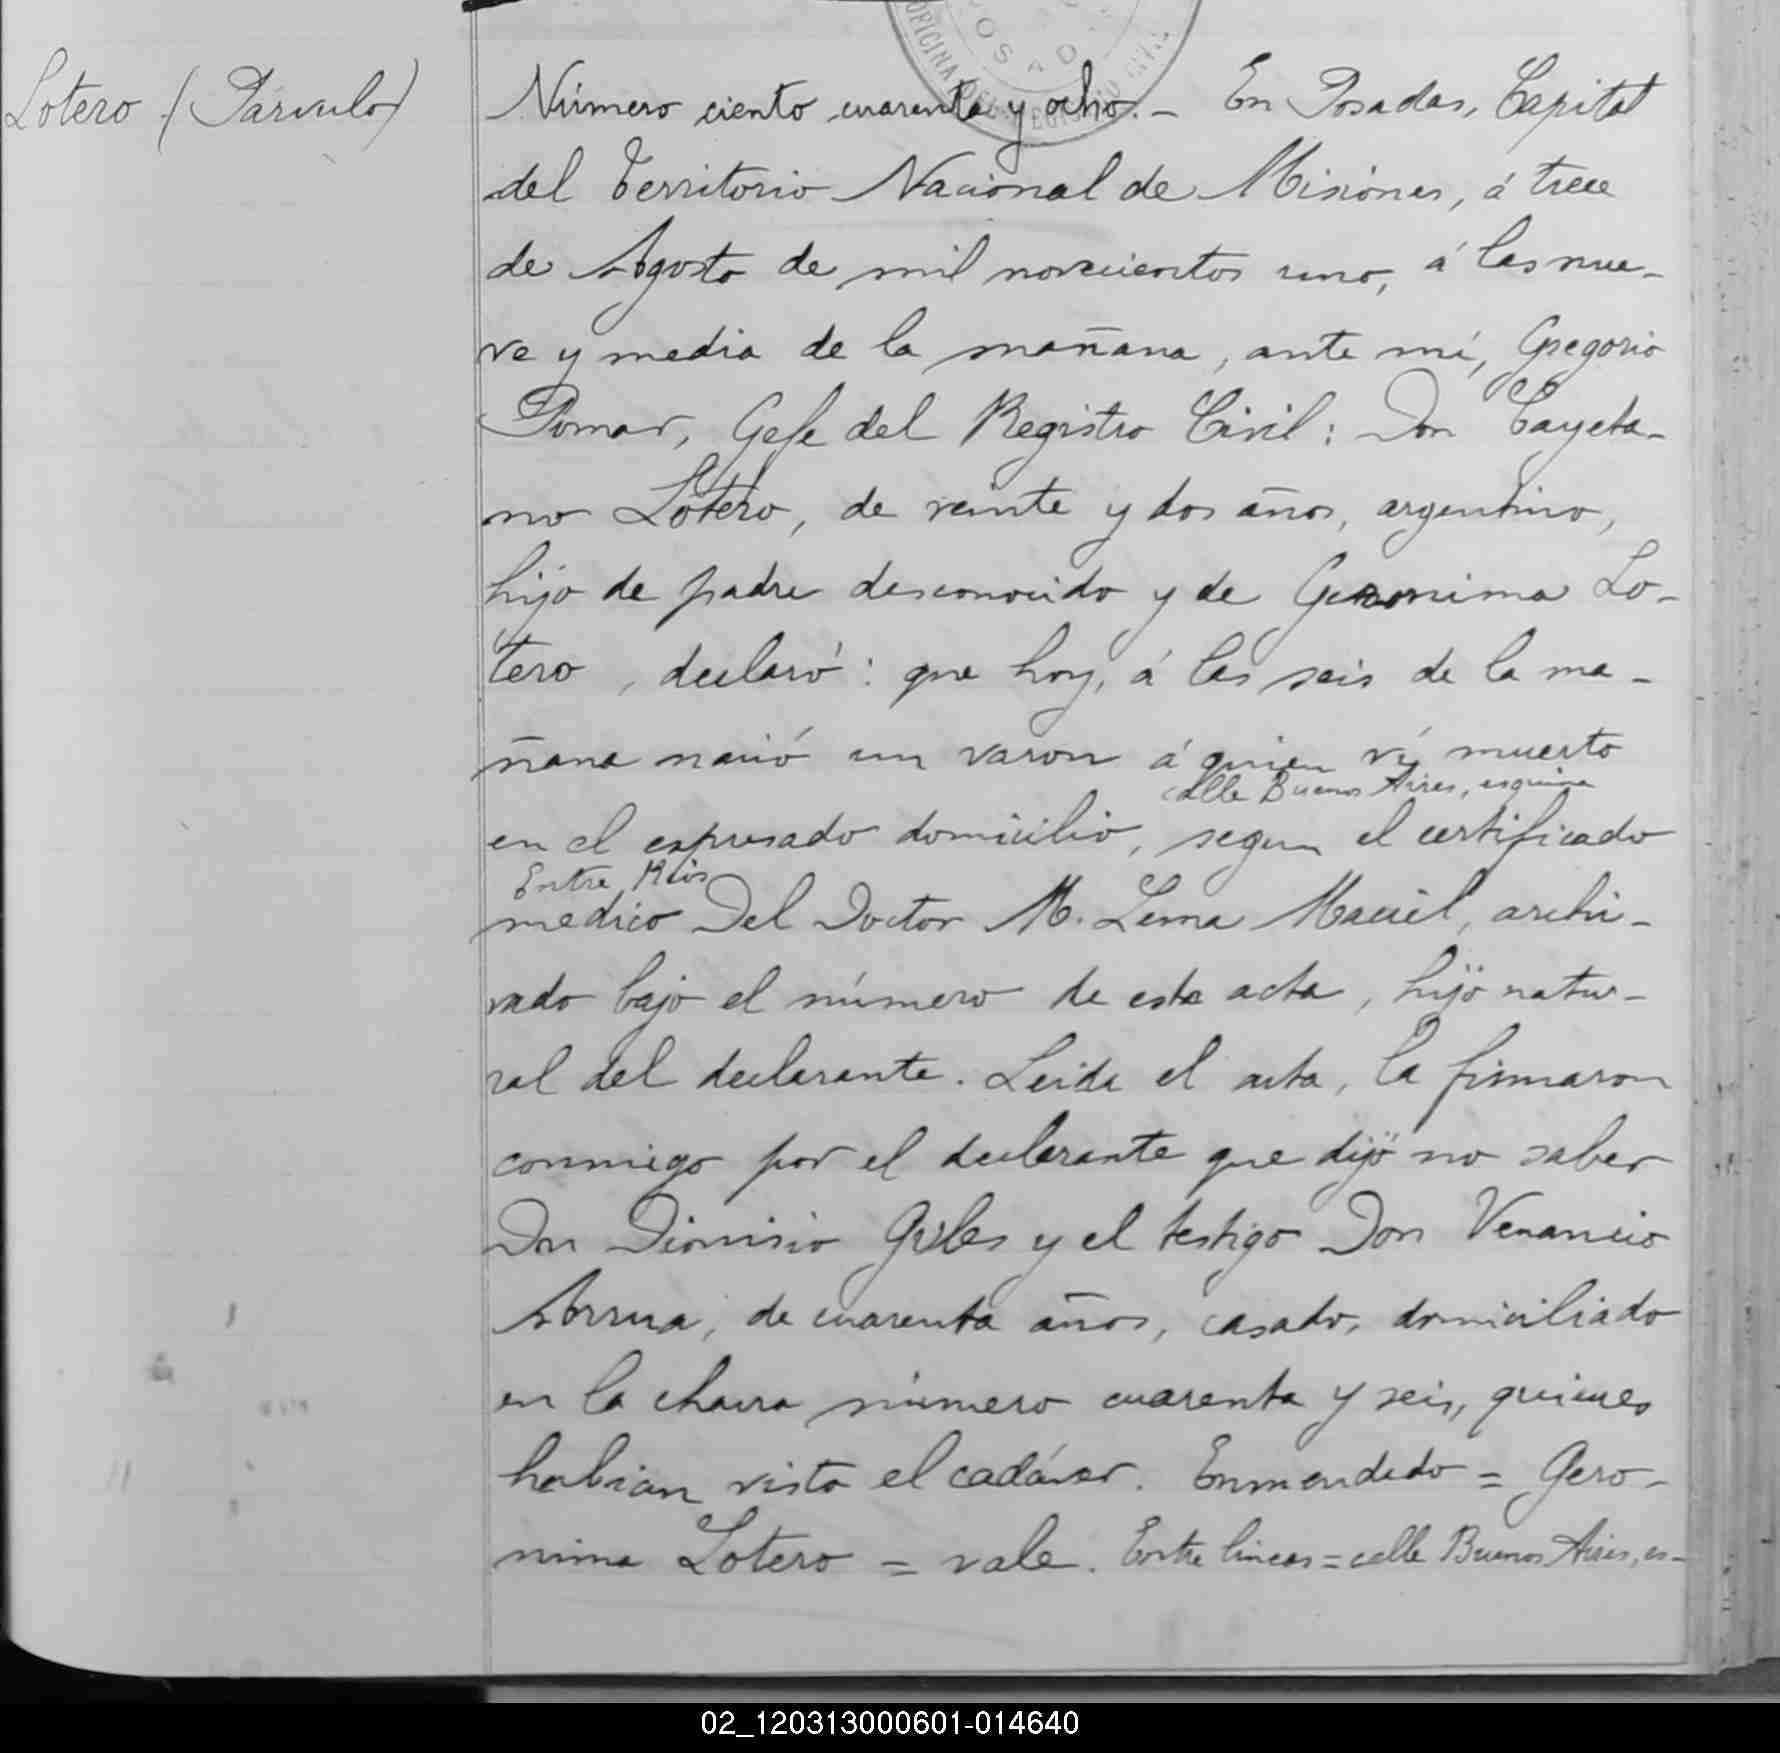 Lotero (Párvulo)
OFICINA DEL REGISTRO CIVIL
POSADAS
Número ciento cuarenta y ocho. - En Posadas, Capital
del Territorio Nacional de Misiones, á trece
de Agosto de mil novecientos uno, á las nue-
ve y media de la mañana, ante mí, Gregorio
Pomar, Gefe del Registro Civil: Don Cayeta-
no Lotero, de veinte y dos años, argentino,
hijo de padre desconocido y de Geronima Lo-
tero, declaró: que hoy, á las seis de la ma-
ñana nació un varon á quien ví muerto
calle Buenos Aires, esquina
en el espresado domicilio, segun el certificado
Entre Rios
medico Del Doctor M. Lema Maciel, archi-
vado bajo el número de esta acta, hijo natu-
ral del declarante. Leida el acta, la firmaron
conmigo por el declarante que dijo no saber
Don Dionisio Giles y el testigo Don Venancio
Arrua, de cuarenta años, casado, domiciliado
en la chacra número cuarenta y seis, quienes
habian visto el cadáver. Enmendado = Gero-
nima Lotero = vale. Entre lineas = calle Buenos Aires, es-
02_120313000601-014640